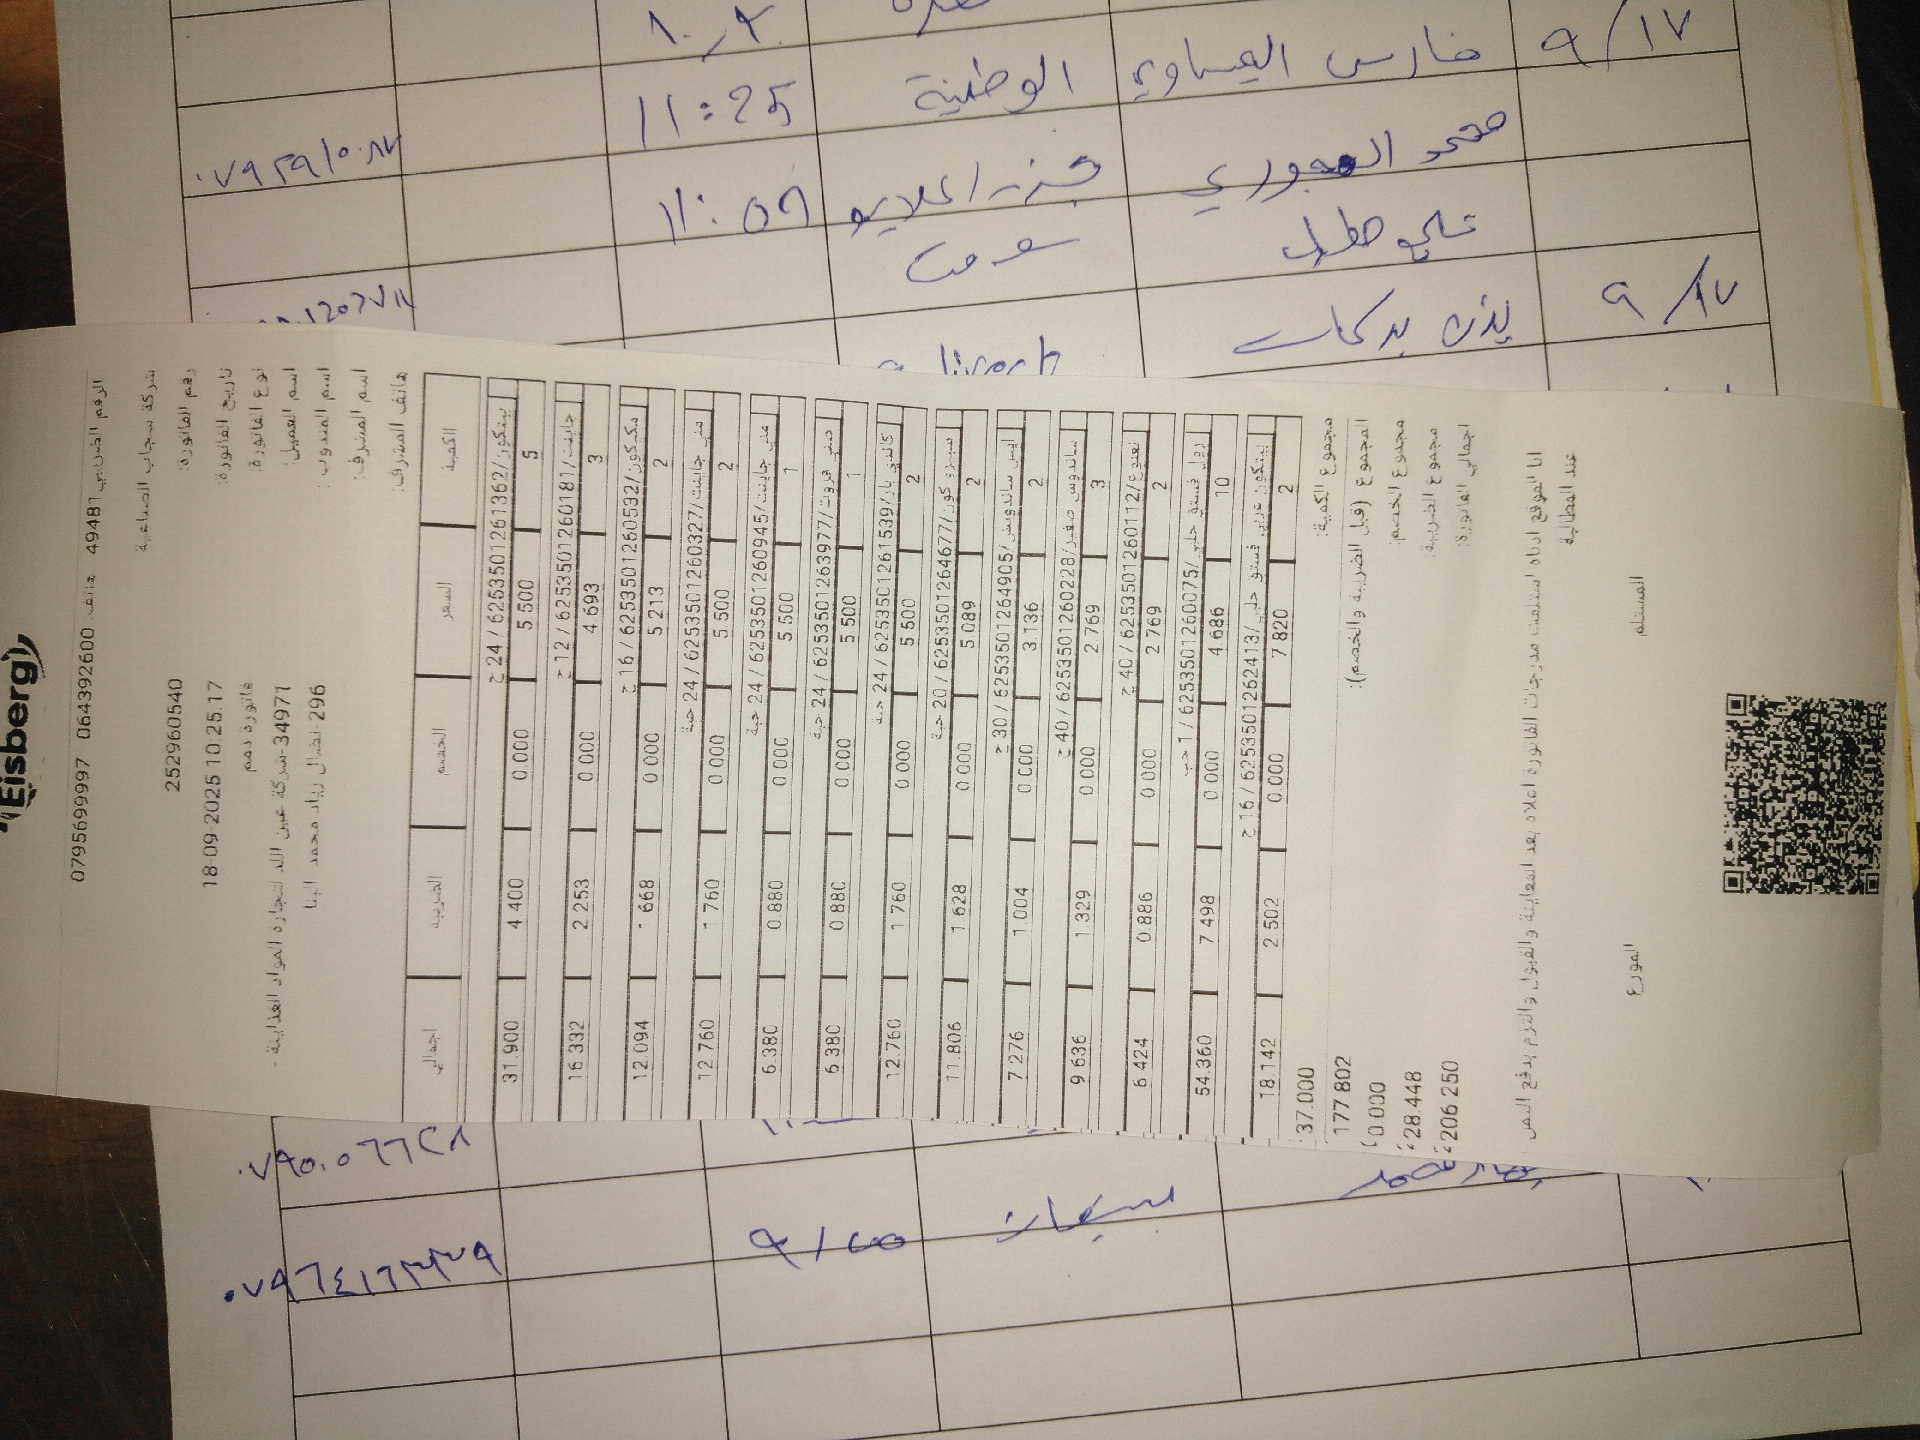 ٩/١٧ فارس العيساوي الوطنية 11:25
محمد العجوري
٩/١٧
Eisberg
الرقم الضريبي 49481 هاتف 0795699997 0643926000
شركة سجاب الصناعية
رقم الفاتورة: 252960540
تاريخ الفاتورة: 18-09-2025 10:25:17
نوع الفاتورة: فاتورة ذمم
اسم العميل: 34971-شركة عين اللد لتجارة المواد الغذائية -
اسم المندوب: 296-نضال زياد محمد البنا
اسم المشرف:
هاتف المشرف:
الكمية السعر الخصم الضريبة اجمالي
بيتكون/6253501261362 / 24 ح
5 5.500 0.000 4.400 31.900
جاينت/6253501260181 / 12 ح
3 4.693 0.000 2.253 16.332
ميكيكون/6253501260532 / 16 ح
2 5.213 0.000 1.668 12.094
مني جاينت/6253501260327 / 24 حبة
2 5.500 0.000 1.760 12.760
مني جاينت/6253501260945 / 24 حبة
1 5.500 0.000 0.880 6.380
مني فروت/6253501263977 / 24 حبة
1 5.500 0.000 0.880 6.380
كاندي بار/6253501261539 / 24 حبة
2 5.500 0.000 1.760 12.760
سبيرو كون/6253501264677 / 20 حبة
2 5.089 0.000 1.628 11.806
ايس ساندويش/6253501264905 / 30 ح
2 3.136 0.000 1.004 7.276
ساندوس صغير/6253501260228 / 40 ح
3 2.769 0.000 1.329 9.636
نعنوع/6253501260112 / 40 ح
2 2.769 0.000 0.886 6.424
رول فستق حلبي/6253501260075 / 1 حب
10 4.686 0.000 7.498 54.360
بيتكون عربي فستق حلبي/6253501262413 / 16 ح
2 7.820 0.000 2.502 18.142
مجموع الكمية: 37.000
المجموع (قبل الضريبة والخصم): 177.802
مجموع الخصم: 0.000
مجموع الضريبة: 28.448
اجمالي الفاتورة: 206.250
انا الموقع ادناه استلمت مدرجات الفاتورة اعلاه بعد المعاينة والقبول والتزم بدفع الثمن
عند المطالبة
المستلم الموزع
٠٧٩٥٠٥٦٦٢٨